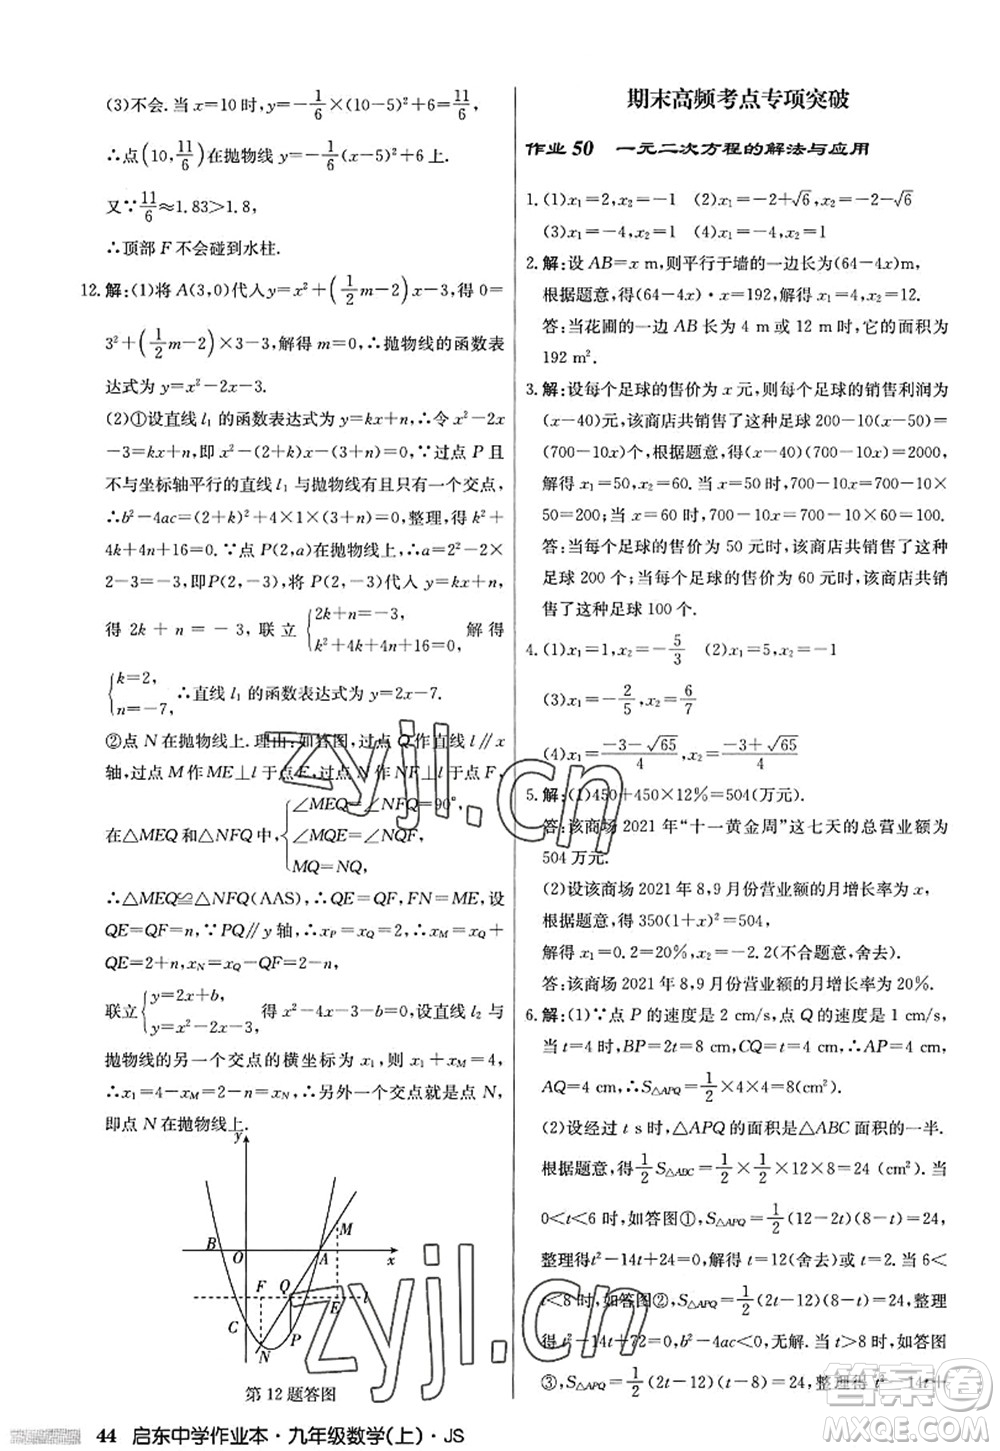 (3)不会.当 x=10 时,y=-1/6×(10-5)²+6=11/6,
∴点(10,11/6)在抛物线 y=-1/6(x-5)²+6 上.
又∵11/6≈1.83>1.8,
∴顶部 F 不会碰到水柱.
12.解:(1)将 A(3,0)代入 y=x²+(1/2m-2)x-3,得 0=
3²+(1/2m-2)×3-3,解得 m=0,∴抛物线的函数表
达式为 y=x²-2x-3.
(2)①设直线 l₁ 的函数表达式为 y=kx+n,∴令 x²-2x
-3=kx+n,即 x²-(2+k)x-3-n=0.∵过点 P 且
不与坐标轴平行的直线 l₁ 与抛物线只有一个交点,
∴b²-4ac=(2+k)²+4×1×(3+n)=0,整理,得 k²+
4k+4n+16=0.∵点 P(2,a)在抛物线上,∴a=2²-2×
2-3=-3,即P(2,-3),将 P(2,-3)代入 y=kx+n,
得 2k+n=-3,联立{2k+n=-3, k²+4k+4n+16=0 解得
{k=2, n=-7, ∴直线 l₁ 的函数表达式为 y=2x-7.
②点 N 在抛物线上.理由:如答图,过点 Q 作直线 l∥x
轴,过点 M 作ME⊥l于点 E,过点 N作 NF⊥l于点 F,
在△MEQ 和△NFQ 中,{∠MEQ=∠NFQ=90°, ∠MQE=∠NQF, MQ=NQ,
∴△MEQ≌△NFQ(AAS),∴QE=QF,FN=ME,设
QE=QF=n.∵PQ∥y 轴,∴x_P=x_Q=2,∴x_M=x_Q+
QE=2+n,x_N=x_Q-QF=2-n,∴x_N+x_M=4,
联立{y=2x+b, y=x²-2x-3, 得 x²-4x-3-b=0,设直线 l₂ 与
抛物线的另一个交点的横坐标为 x₁,则 x₁+x_M=4,
∴x₁=4-x_M=2-n,∴x₁=x_N,∴另外一个交点是点 N,
即点 N 在抛物线上.
y
M
B O A x
F Q
E l
C
N P
第 12 题答图
期末高频考点专项突破
作业 50 一元二次方程的解法与应用
1.(1)x₁=2,x₂=-1 (2)x₁=-2+√6,x₂=-2-√6
(3)x₁=-4,x₂=1 (4)x₁=-4,x₂=1
2.解:设 AB=x m,则平行于墙的一边长为(64-4x)m,
根据题意,得(64-4x)·x=192,解得 x₁=4,x₂=12.
答:当花圃的一边 AB 长为 4 m 或 12 m 时,它的面积为
192 m².
3.解:设每个足球的售价为 x 元,则每个足球的销售利润为
(x-40)元,该商店共销售了这种足球 200-10(x-50)=
(700-10x)个,根据题意,得(x-40)(700-10x)=2000,
解得 x₁=50,x₂=60.当 x=50 时,700-10x=700-10×
50=200;当 x=60 时,700-10x=700-10×60=100.
答:当每个足球的售价为 50 元时,该商店共销售了这种
足球 200 个;当每个足球的售价为 60 元时,该商店共销
售了这种足球 100 个.
4.(1)x₁=1,x₂=-5/3 (2)x₁=5,x₂=-1
(3)x₁=-2/5,x₂=6/7
(4)x₁=(-3-√65)/4,x₂=(-3+√65)/4
5.解:(1)450+450×12%=504(万元).
答:该商场 2021 年“十一黄金周”这七天的总营业额为
504 万元.
(2)设该商场 2021 年 8,9 月份营业额的月增长率为 x,
根据题意,得 350(1+x)²=504,
解得 x₁=0.2=20%,x₂=-2.2(不合题意,舍去).
答:该商场 2021 年 8,9 月份营业额的月增长率为 20%.
6.解:(1)∵点 P 的速度是 2 cm/s,点 Q 的速度是 1 cm/s,
当 t=4 时,BP=2t=8(cm),CQ=t=4 cm,∴AP=4 cm,
AQ=4 cm,∴S△APQ=1/2×4×4=8(cm²).
(2)设经过 t s 时,△APQ 的面积是△ABC 面积的一半.
根据题意,得1/2S△ABC=1/2×1/2×12×8=24 (cm²).当
0<t<6 时,如答图①,S△APQ=1/2(12-2t)(8-t)=24,
整理得t²-14t+24=0,解得 t=12(舍去)或 t=2.当 6<
t<8 时,如答图②,S△APQ=1/2(2t-12)(8-t)=24,整理
得t²-14t+72=0,b²-4ac<0,无解.当 t>8 时,如答图
③,S△APQ=1/2(2t-12)(t-8)=24,整理得 t²-14t+
44 启东中学作业本·九年级数学(上)·JS
zyjl.cn
zyjl.cn
答案圈
MXQE.COM